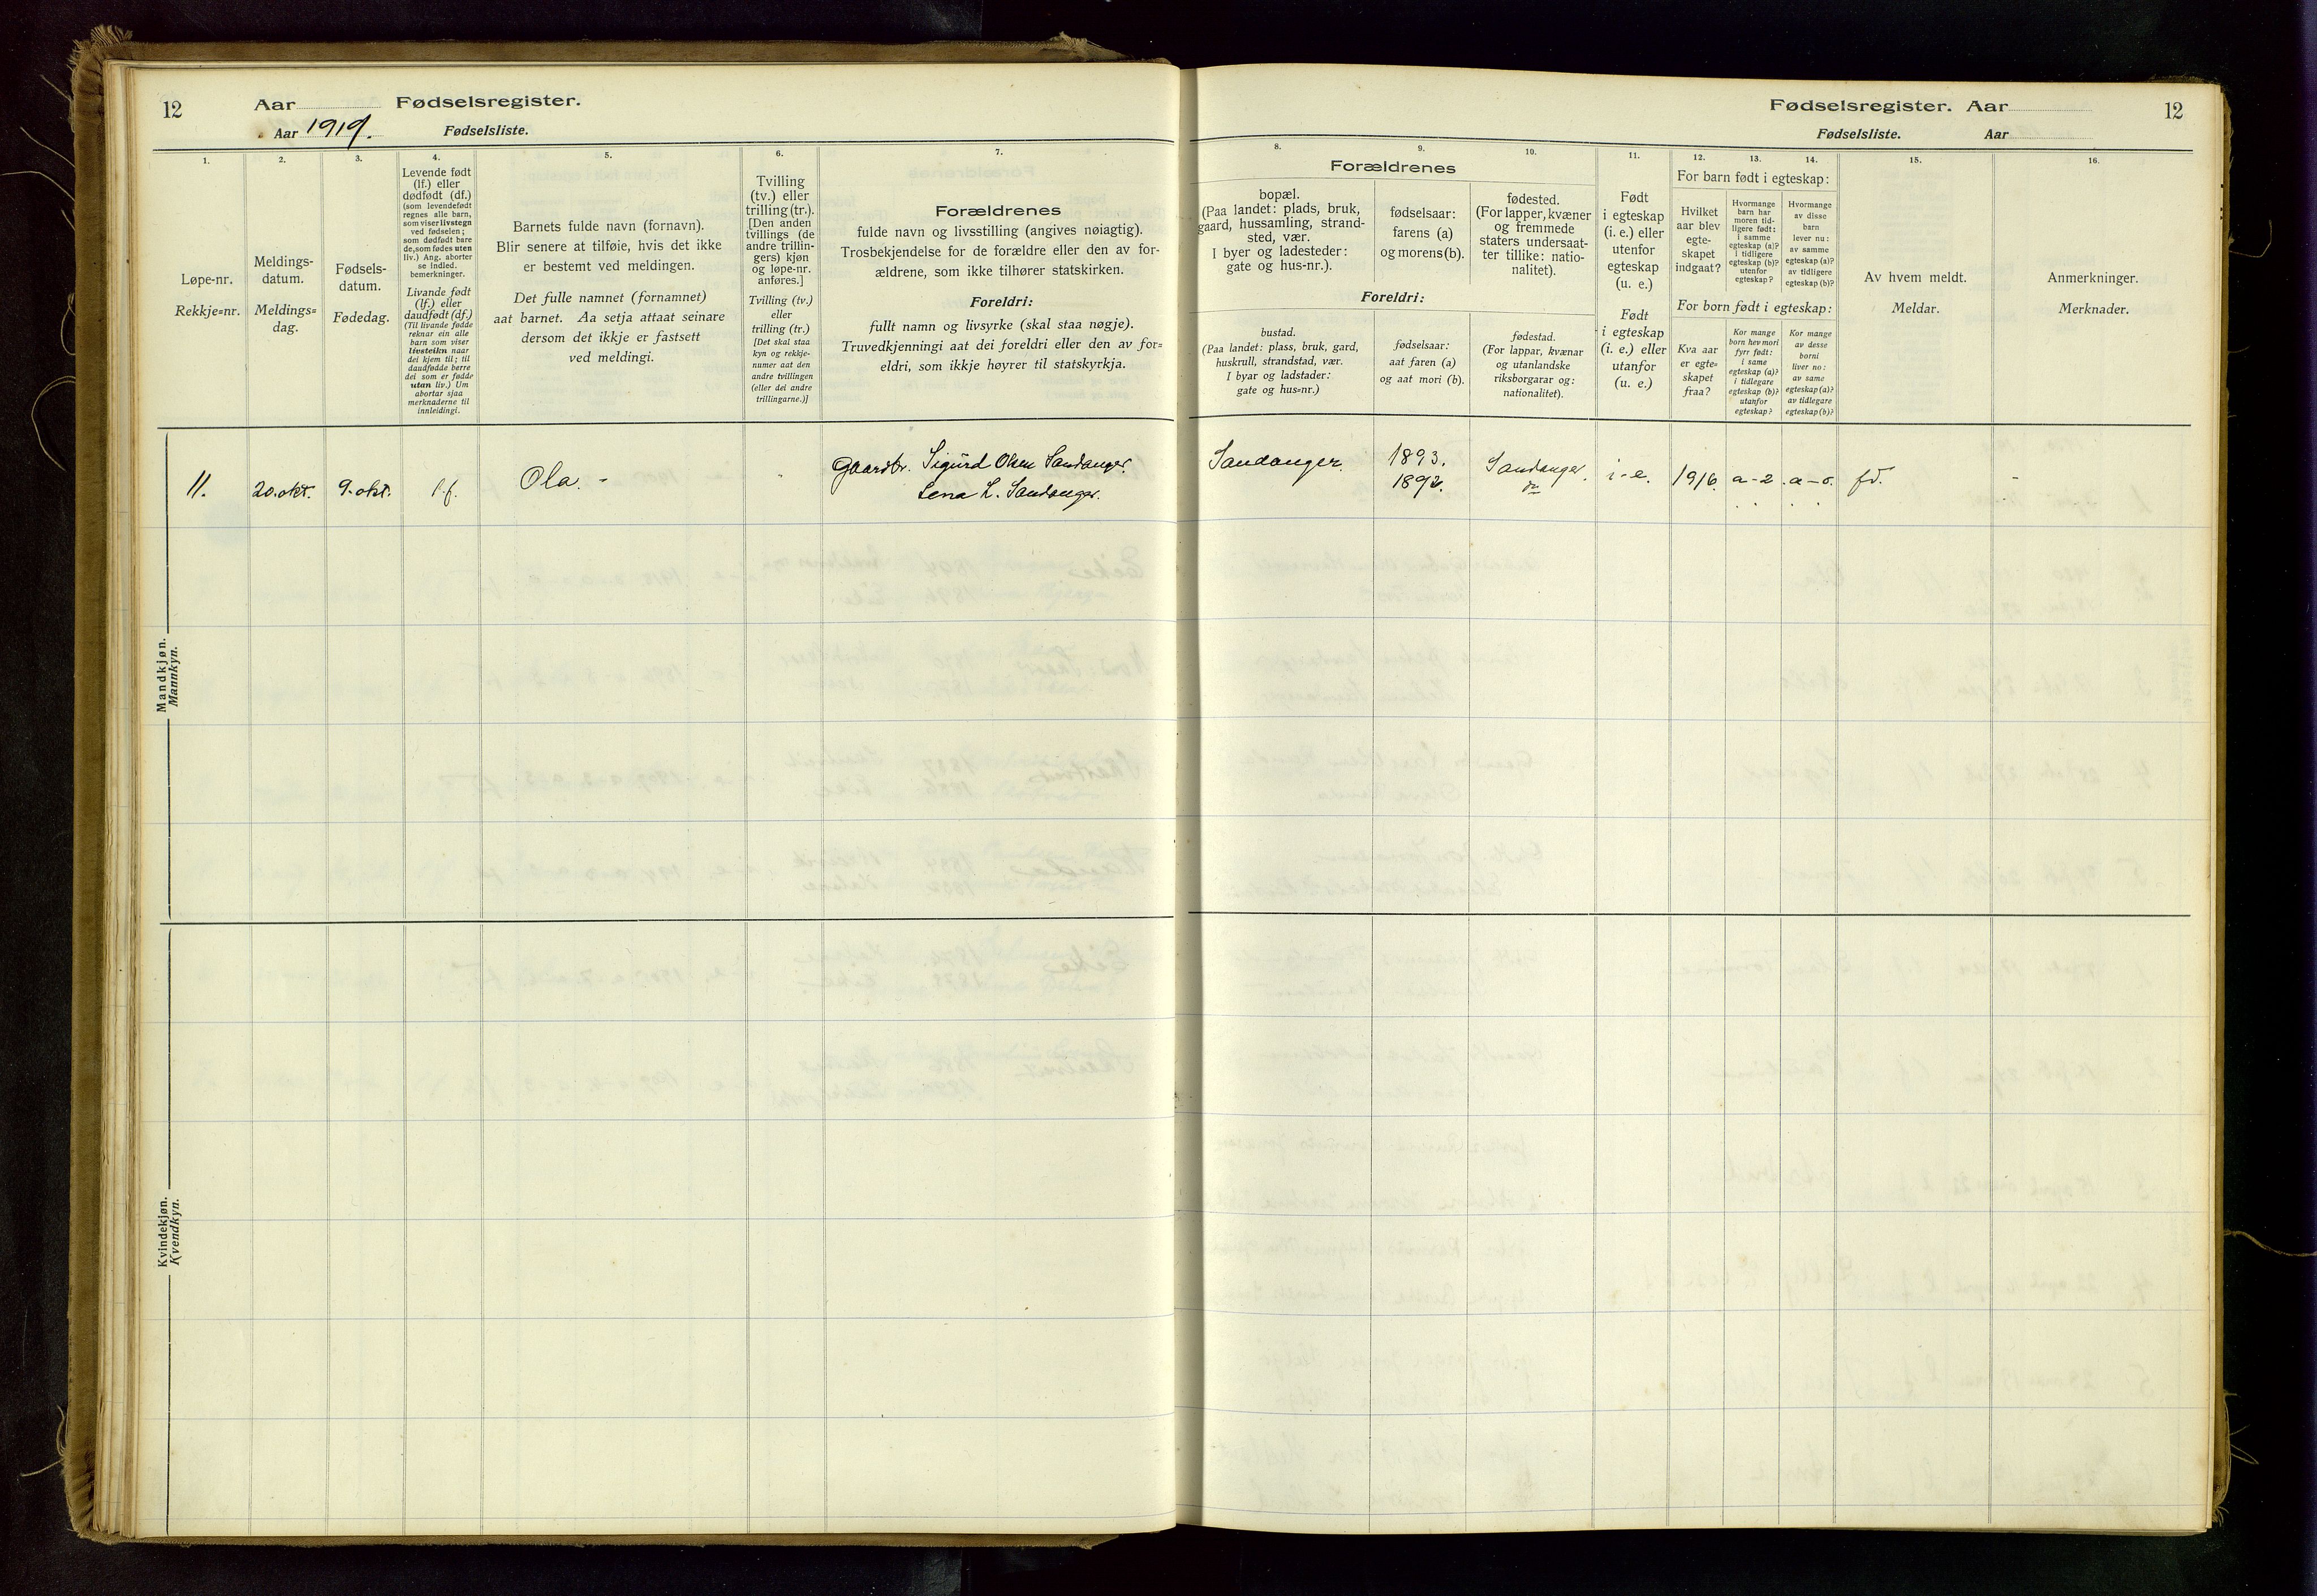 12
Aar Fødselsregister.
Aar 1919. Fødselsliste.
1.
Løpe-nr.
Rekkje=nr.
2.
Meldings-
datum.
Meldings=
dag.
3.
Fødsels-
datum.
Fødedag.
4.
Levende født
(lf.) eller
dødfødt (df.)
(som levendefødt
regnes alle barn,
som viser livstegn
ved fødselen;
som dødfødt bare
de, som fødes uten
liv.) Ang. aborter
se indled.
bemerkninger.
Livande født
(lf.) eller
daudfødt (df.)
(Til livande fødde
reknar ein alle
born som viser
livsteikn naar
dei kjem til; til
daudfødde berre
dei som er fødde
utan liv.) Um
abortar sjaa
merknaderne til
innleidingi.
5.
Barnets fulde navn (fornavn).
Blir senere at tilføie, hvis det ikke
er bestemt ved meldingen.
Det fulle namnet (fornamnet)
aat barnet. Aa setja attaat seinare
dersom det ikkje er fastsett
ved meldingi.
6.
Tvilling
(tv.) eller
trilling (tr.).
[Den anden
tvillings (de
andre trillin-
gers) kjøn
og løpe-nr.
anføres.]
Tvilling (tv.)
eller
trilling (tr.)
[Det skal staa
kyn og rekkje-
numer aat den
andre tvillingen
(eller dei andre
trillingarne.)]
7.
Forældrenes
fulde navn og livsstilling (angives nøiagtig).
Trosbekjendelse for de forældre eller den av for-
ældrene, som ikke tilhører statskirken.
Foreldri:
fullt namn og livsyrke (skal staa nøgje).
Truvedkjenningi aat dei foreldri eller den av for=
eldri, som ikkje høyrer til statskyrkja.
Mandkjøn.
Mannkyn.
11. 20. okt. 9. okt. l.f. Ola. Gaardbr. Sigurd Olsen Sandanger.
Lena L. Sandanger.
Kvindekjøn.
Kvendkyn.
Fødselsregister. Aar
12
Fødselsliste. Aar
Forældrenes
8.
bopæl.
(Paa landet: plads, bruk,
gaard, hussamling, strand-
sted, vær.
I byer og ladesteder:
gate og hus-nr.).
9.
fødselsaar:
farens (a)
og morens (b).
10.
fødested.
(For lapper, kvæner
og fremmede
staters undersaat-
ter tillike: natio-
nalitet).
Foreldri:
bustad.
(Paa landet: plass, bruk, gard,
huskrull, strandstad, vær.
I byar og ladstader:
gate og hus=nr.)
fødselsaar:
aat faren (a)
og aat mori (b).
fødestad.
(For lappar, kvænar
og utanlandske
riksborgarar og:
nationalitet).
11.
Født
i egteskap
(i. e.) eller
utenfor
egteskap
(u. e.)
Født
i egteskap
(i. e.) eller
utanfor
(u. e.)
12. 13. 14.
For barn født i egteskap:
Hvilket
aar blev
egte-
skapet
indgaat?
Hvormange
barn har
moren tid-
ligere født:
i samme
egteskap (a)?
i tidligere
egteskap (b)?
utenfor
egteskap?
Hvormange
av disse
barn
lever nu:
av samme
egteskap (a)?
av tidligere
egteskap (b)?
For born født i egteskap:
Kva aar
er egte=
skapet
fraa?
Kor mange
born hev mori
fyrr født:
i same
egteskap (a)?
i tidlegare
egteskap (b)?
utanfor
egteskap?
Kor mange
av desse
borni
liver no:
av same
egteskap (a)?
av tidlegare
egteskap (b)?
15.
Av hvem meldt.
Meldar.
16.
Anmerkninger.
Merknader.
Sandanger. 1893. Sandanger. i-e. 1916. a-2. a-0.
1892. do